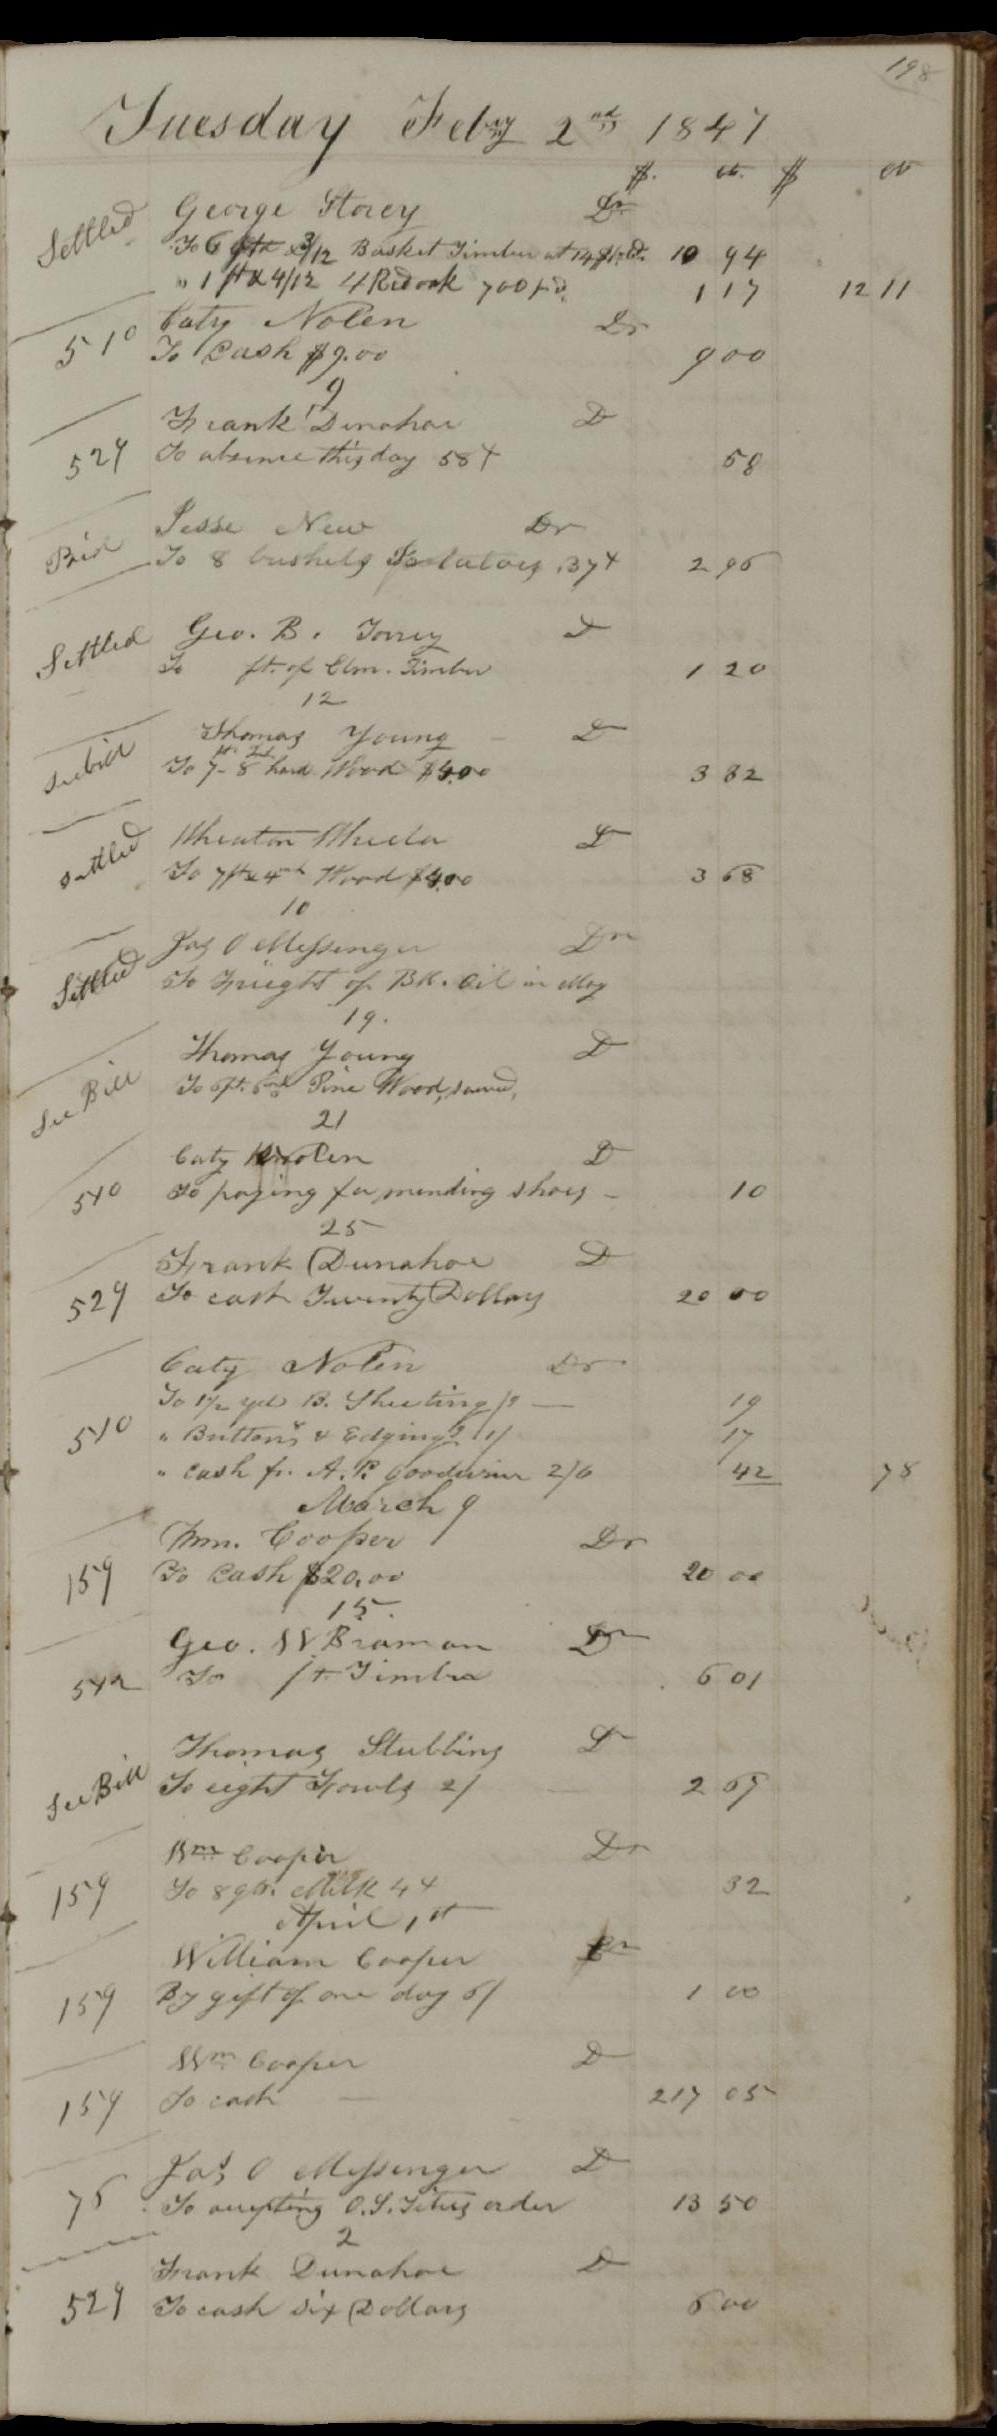 198
Tuesday Feby 2nd 1847
$. ct. $ ct
Settled George Storey Dr
To 6 3/12 Basket Timber at 14 10 94
" 1 ft & 4/12 4 Red oak 700 1 17 12 11
510 Caty Nolen Dr
To Cash $9.00 9 00
9
529 Frank Donahoe D
To absence this day 58 58
Jesse New Dr
To 8 bushels Potatoes .37 2 96
Settled Geo. B. Torrey D
To ft. of Elm. Timber 1 20
12
See bill Thomas Young D
To 7 - 8 hard Wood $4.00 3 82
Settled Wheaton Wheeler D
To 7ft & 4 Wood $4.00 3 68
10
Settled Jas O Messenger Dr
To Freight of Bk. Oil in May
19.
See Bill Thomas Young D
To 6ft. 6 Pine Wood, sawed,
21
510 Caty Nolen D
To paying for mending shoes - 10
25
529 Frank Dunahoe D
To cash Twenty Dollars 20 00
510 Caty Nolen Dr
To 1½ yd B. Sheeting /9 — 19
" Buttons & Edging 1/ 17
" Cash fr. A. P. Goodwin 2/6 42 78
March 9
159 Wm. Cooper Dr
To Cash $20.00 20 00
15.
542 Geo. W. Braman Dr
To ft. Timber 6 01
See Bill Thomas Stubbins D
To eight Fowls 2/ 2 67
159 Wm Cooper Dr
To 8 qts. Milk 4 32
April 1st
159 William Cooper Cr
By gift of one day 6/ 1 00
159 Wm Cooper D
To cash — 217 05
76 Jas O Messenger D
To accepting O. S. Titus order 13 50
2
529 Frank Dunahoe D
To cash Six Dollars 6 00